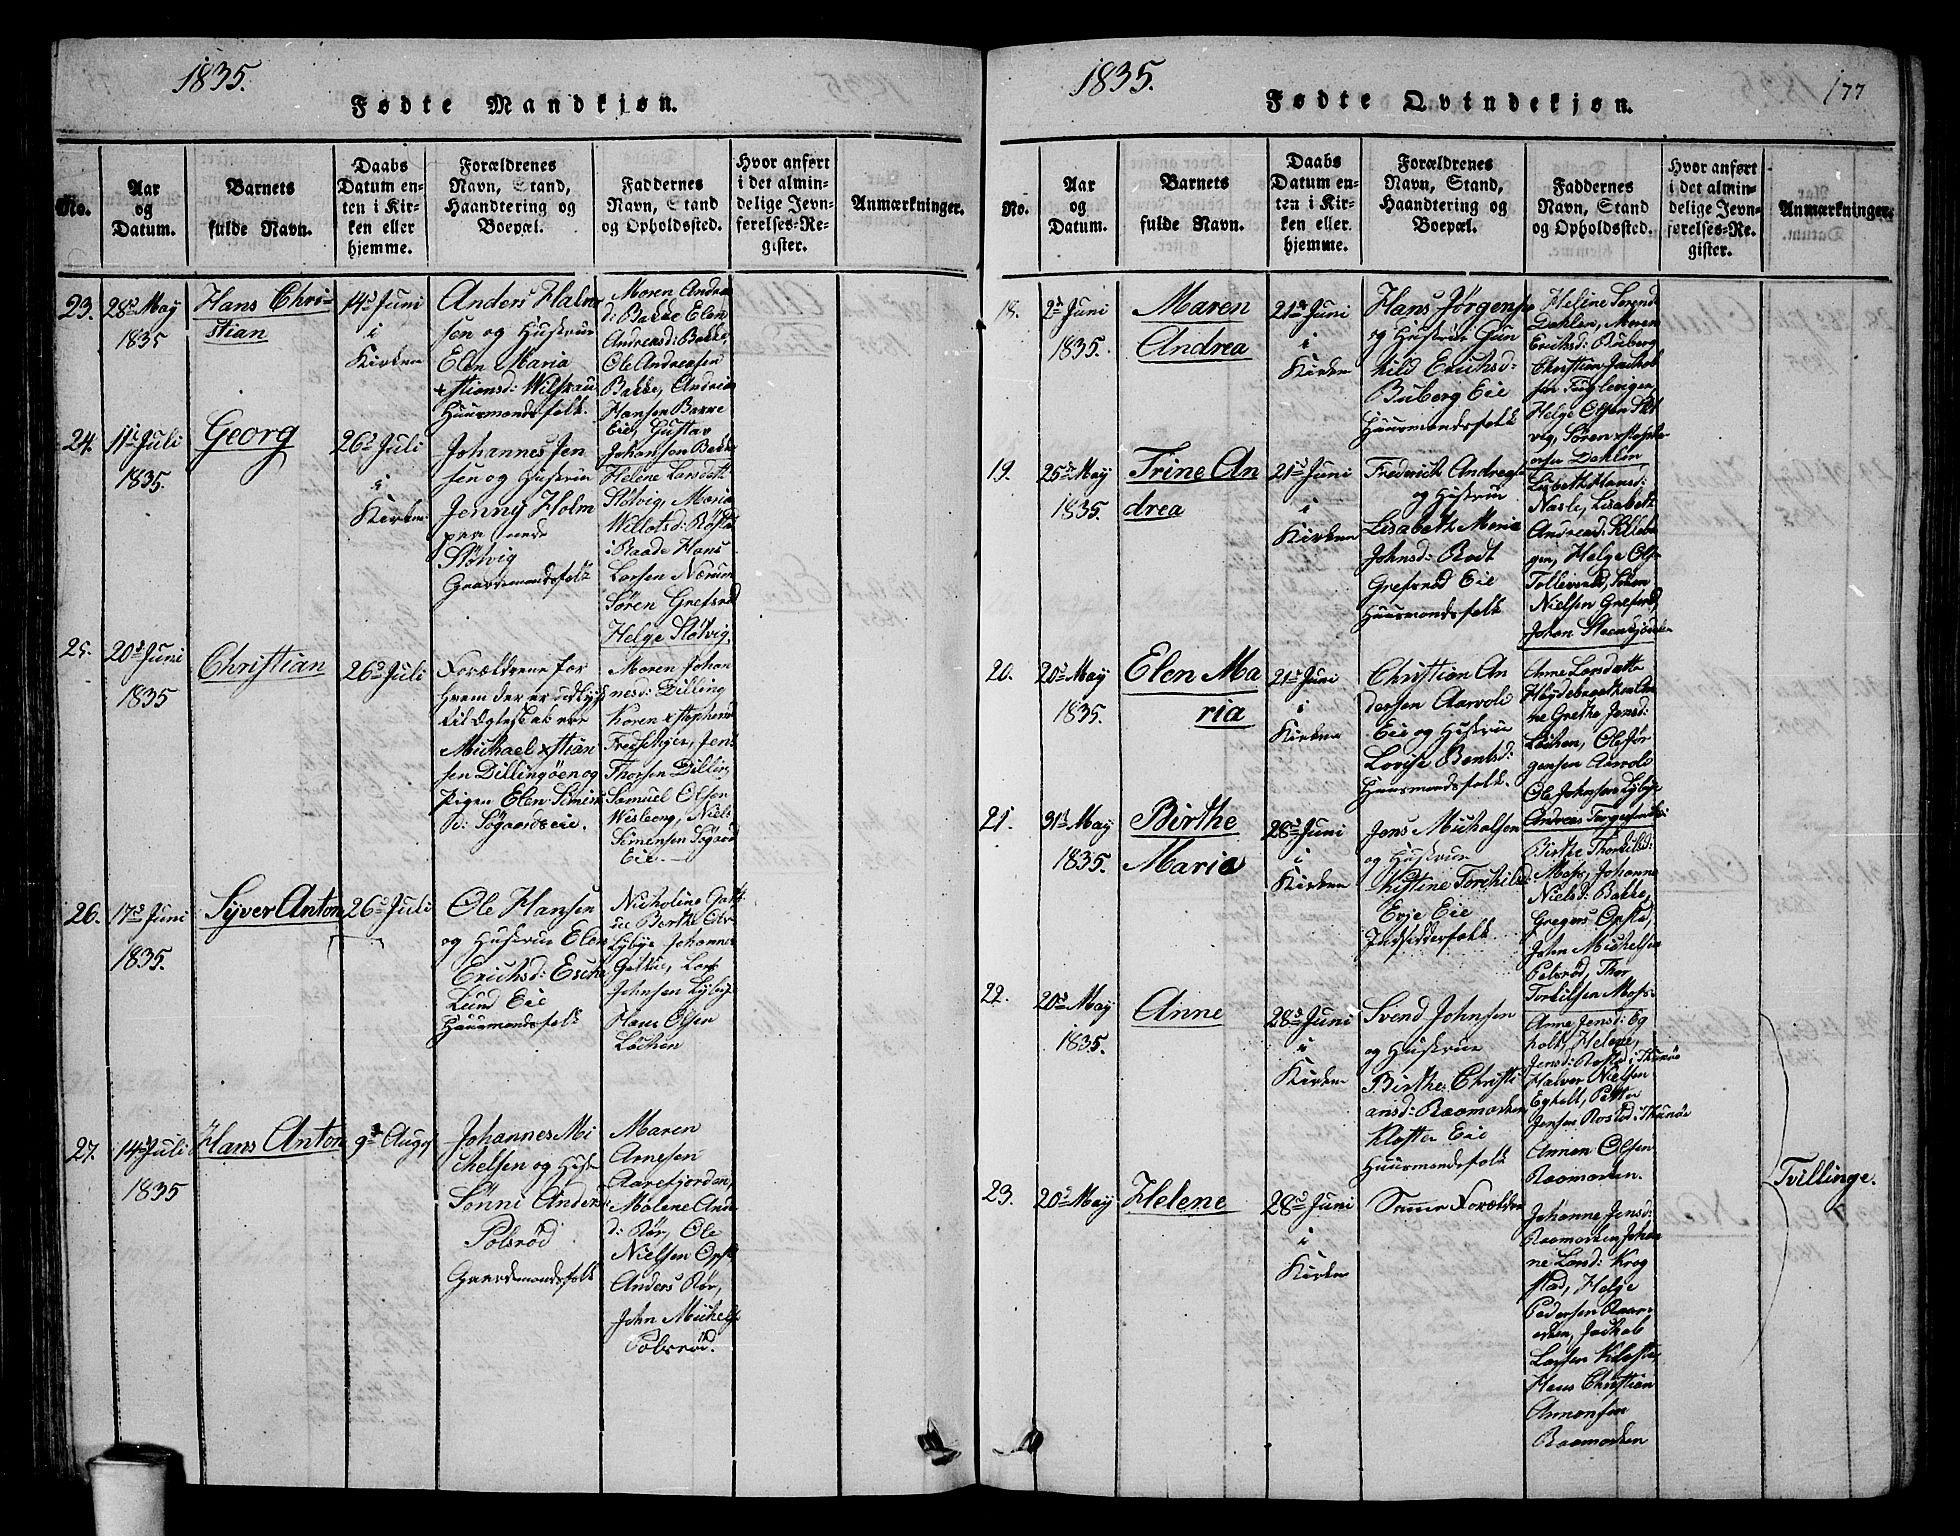 1835.
Fødte Mandkjøn.
No.
Aar
og
Datum.
Barnets
fulde Navn.
Daabs
Datum en-
ten i Kir-
ken eller
hjemme.
Forældrenes
Navn, Stand,
Haandtering og
Boepæl.
Faddernes
Navn, Stand
og Opholdssted.
Hvor anført
i det almin-
delige Jevn-
førelses-Re-
gister.
Anmærkninger.
23.
28de May
1835
Hans Chri-
stian
14de Juni
i
Kirken
Anders Halv
sen og Hustrue
Elen Maria
Huusmandsfolk.
Maren Andrea
d: Bakke Elen
Andreasd: Bakke,
Ole Andreasen
Bakke, Andreas
Hansen Barre
Eie, Gustav
Johansen Bakke
24.
11te Juli
1835.
Georg
26de Juli
i
Kirken
Johannes Jen
sen og Hustrue
Jenny Holm
Støtvig
Gaardmandsfolk
Helene Larsdatt
Støtvig, Maria
i Raade Hans
Larsen Nærum
Søren Grefsrød
Helge Støtvig,
25.
20de Juni
1835
Christian
26de Juli
Forældrene for
hvem der er udlyst
til Ægteskab ere
Michael xstian
sen Dillingøen og
Pigen Elen Simens
d: Søgaardseie.
Maren Johan
nesd: Dilling
Karen xstophersd
Jens
Thorsen Dilling
Samuel Olsen
Wisleeng, Niels
Simensen Søgaard
Eie.
26.
17de Juni
1835.
Syver Anton
26de Juli
Ole Hansen
og Hustrue Elen
Erichsd: Eske
Lund Eie
Huusmandsfolk
Nicholine
Berthe Ols
Lybye Johannes
Lars
Johnsen Lybye
Hans Olsen
Løchen
27.
14de Juli
1835
Hans Anton
9de Aug
Johannes Mi
chelsen og Hust
Sønni Anders
Polsrød
Gaardemandsfolk
Maren
Arnesen
Aarefjorden,
Malene And
d: Rør, Ole
Nielsen Opst
Anders Rør,
John Michels
Polsrød.
1835.
177
Fødte Qvindekjøn.
No.
Aar
og
Datum.
Barnets
fulde Navn.
Daabs
Datum en-
ten i Kir-
ken eller
hjemme.
Forældrenes
Navn, Stand,
Haandtering og
Boepæl.
Faddernes
Navn, Stand
og Opholdssted.
Hvor anført
i det almin-
delige Jevn-
førelses-Re-
gister.
Anmærkninger.
18.
2de Juni
1835.
Maren
Andrea
21de Juni
i
Kirken
Hans Jørgens
og Hustrue Gun
hild Erichsd:
Buberg Eie
Huusmandsfolk
Helene Sørensd
Dahlen, Maren
Ericksd: Buberg
Christian Jachob
sen Fuglevigen,
Helge Olsen Støt
vig, Søren xstoph
ersen Dahlen,
19.
25de May
1835.
Trine An
drea
21de Juni
i
Kirken
Frederick Andreas
og Hustrue
Lisabeth Marie
Johnsd: Rødt
Grefsrød Eie
Huusmandsfolk
Lisbeth Hansd:
Nasle, Lisabeth
Andreasd:
Helge Ols
Nielsen Grefsrød,
Johan
20.
20de May
1835.
Elen Ma
ria
21de Juni
i
Kirken
Christian An
dersen Aarvold
Eie og Hustrue
Lovise Bentsd:
Huusmandsfolk.
Anne Larsdatte
ne Grethe Jensd:
Løchen, Ole Jør
gensen Aarvold
Ole Johnsen Lybye
Andreas
21.
31te May
1835.
Birthe
Maria
28de Juni
i
Kirken
Jens Michelsen
og Hustrue
Kistine Torchilsd
Evje Eie
Indsidderfolk
Birthe Thorkilsd:
Moss, Johanne
Nielsd: Bakke,
Gregers Opsta,
John Michelsen
Polsrød, Thor
Torkilsen Moss.
22.
20de May
1835.
Anne
28de Juni
i
Kirken
Svend Johnsen
og Hustrue
Birthe Christi
ansd: Raamarken
Kloster Eie
Huusmandsfolk
Anne Jensd: Eg
holt, Helene
Jensd: Rostad i Thunøe
Halver Nielsen
Egholt, Petter
Jensen Rostad i Thunøe
Annon Olsen
Raamarken.
23.
20de May
Helene
28de Juni
i
Kirken
Samme Forældre
Johanne Jensd:
Raamarken Johan
ne Larsd: Krog
stad, Helge
Pedersen Raam
arken, Jachob
Larsen Kloster,
Hans Christian
Annonsen
Raamarken
Tvillinge.